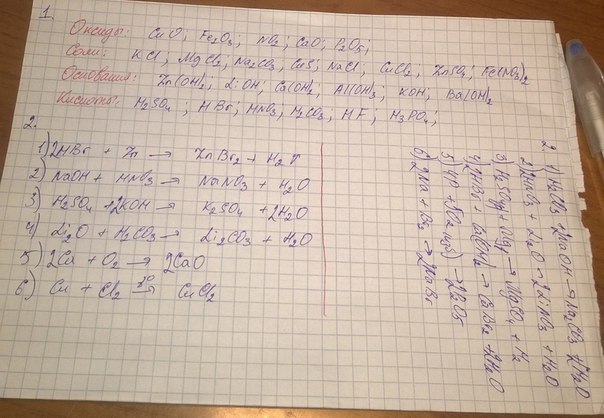 1.
Оксиды: CuO; Fe2O3; NO2; CaO; P2O5;
Соли: KCl; MgCl2; Na2CO3; CuS; NaCl; CuCl2; ZnSO4; Fe(NO3)2
Основания: Zn(OH)2; LiOH; Ca(OH)2; Al(OH)3; KOH; Ba(OH)2
Кислоты: H2SO4; HBr; HNO3; H2CO3; HF; H3PO4;
2.
1) 2HBr + Zn → ZnBr2 + H2↑
2) NaOH + HNO3 → NaNO3 + H2O
3) H2SO4 + 2KOH → K2SO4 + 2H2O
4) Li2O + H2CO3 → Li2CO3 + H2O
5) 2Ca + O2 → 2CaO
6) Cu + Cl2 t° → CuCl2
2. 1) H2CO3 + 2NaOH → Na2CO3 + 2H2O
2) 2HNO3 + Li2O → 2LiNO3 + H2O
3) H2SO4 + Mg → MgSO4 + H2
4) 2HBr + Ca(OH)2 → CaBr2 + 2H2O
5) 4P + 5O2 → 2P2O5
6) 2Na + Br2 → 2NaBr